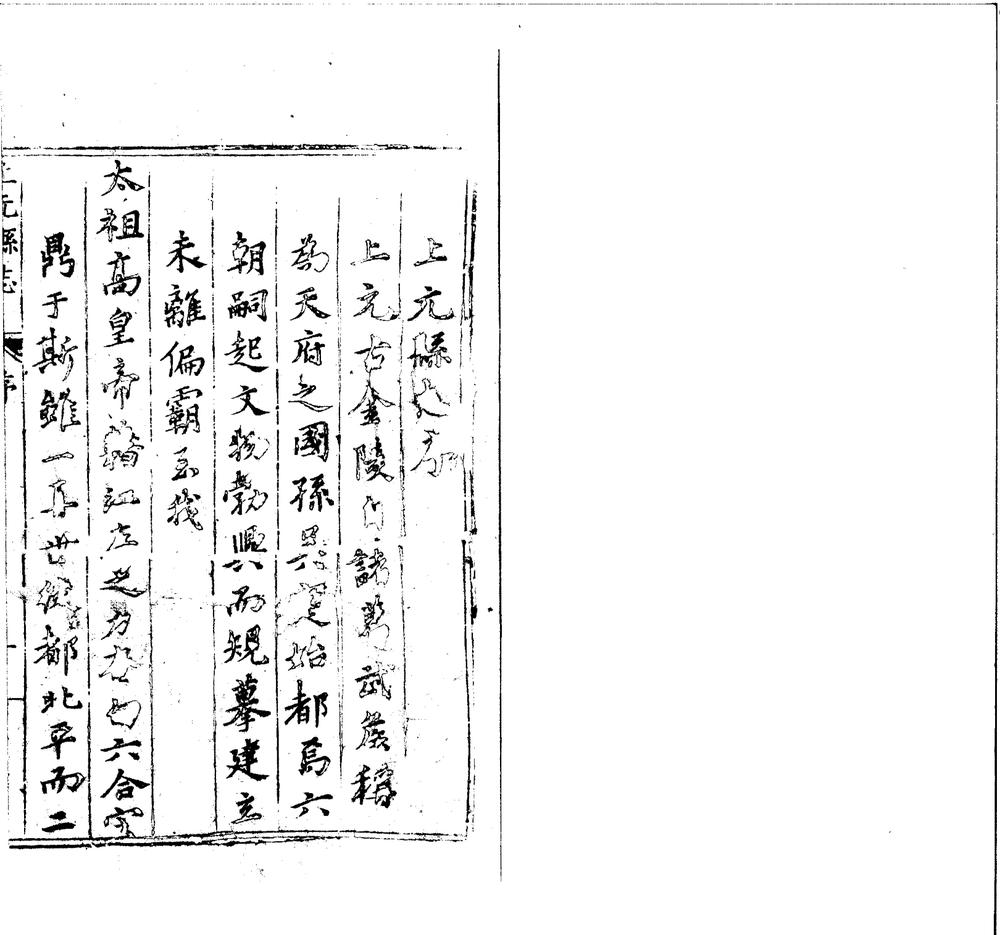 上元縣志序
上元古金陵自諸葛武侯稱
為天府之國孫吳定始都焉六
朝嗣起文物勃興而規摹建立
未離偏霸至我
太祖高皇帝藉江左之力奄勾六合定
鼎于斯雖一再世後都北平而二
上元縣志 序